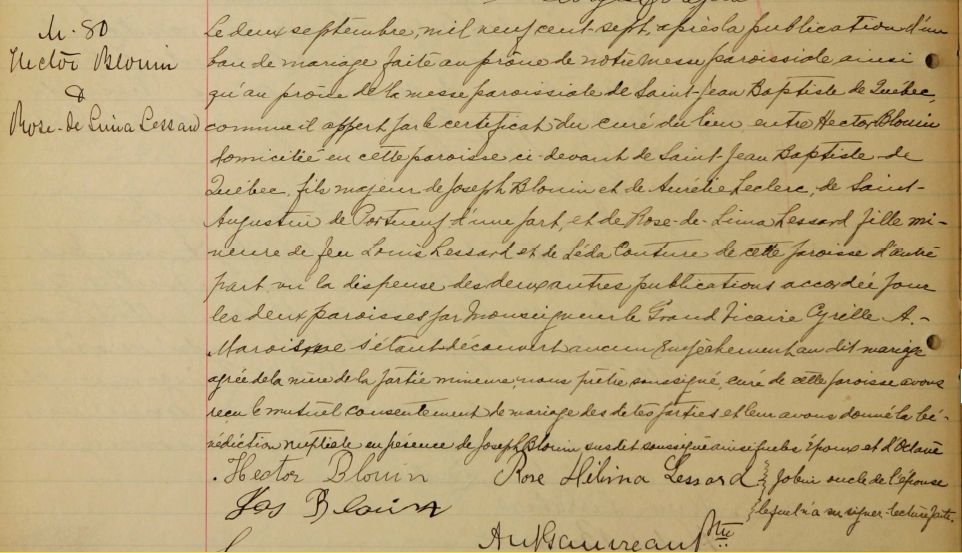 M. 80
Hector Blouin
&
Rose-de Lima Lessard
Le deux septembre, mil neuf cent-sept, après la publication d'un
ban de mariage faite au prône de notre messe paroissiale ainsi
qu'au prône de la messe paroissiale de Saint-Jean Baptiste de Québec,
comme il appert par le certificat du curé du lieu, entre Hector Blouin
domicilié en cette paroisse ci-devant de Saint-Jean Baptiste de
Québec, fils majeur de Joseph Blouin et de Aurélie Leclerc, de Saint-
Augustin de Portneuf d'une part, et de Rose-de-Lima Lessard fille mi-
neure de feu Louis Lessard et de Léda Couture de cette paroisse d'autre
part, vu la dispense des deux autres publications accordée pour
les deux paroisses par Monseigneur le Grand Vicaire Cyrille A.-
Marois, ne s'étant découvert aucun empêchement au dit mariage
agréé de la mère de la partie mineure, nous prêtre, soussigné, curé de cette paroisse avons
reçu le mutuel consentement de mariage des dites parties et leur avons donné la bé-
nédiction nuptiale en présence de Joseph Blouin susdit soussigné ainsi que les Époux et d'Octave
Hector Blouin Rose Hélima Lessard Jobin oncle de l'épouse
Jos Blouin lequel n'a su signer. Lecture faite.
Ptre